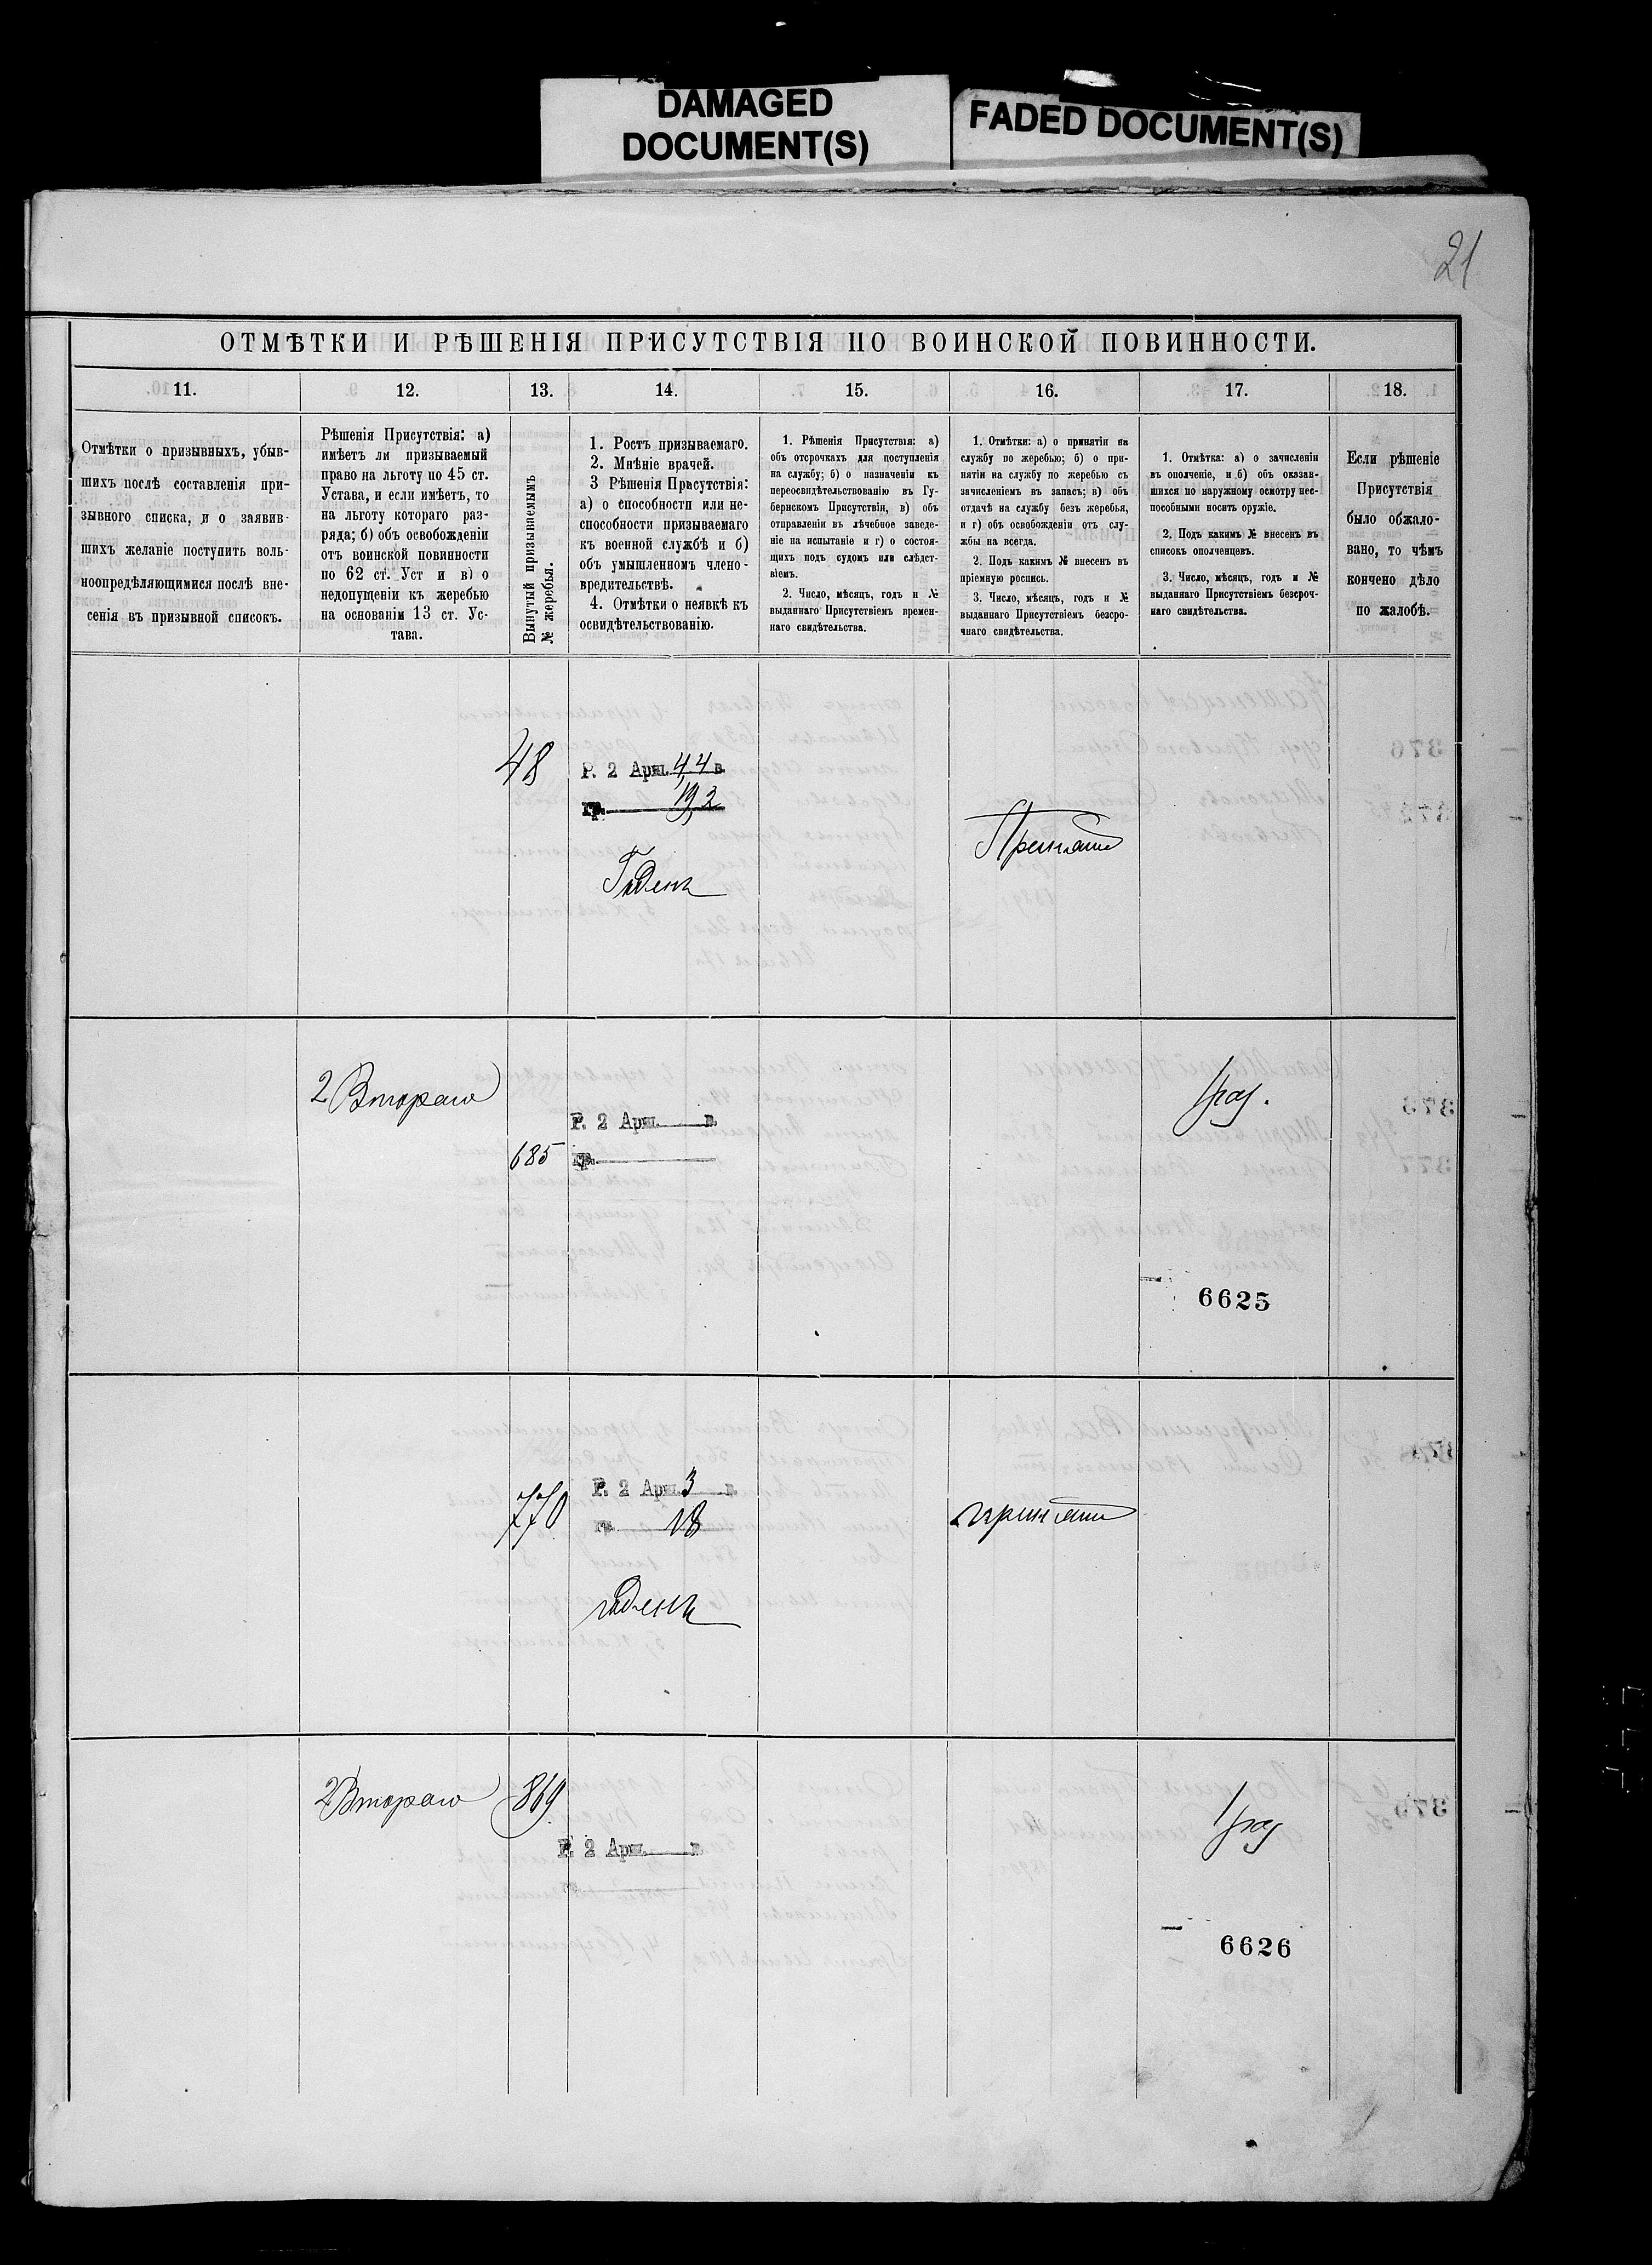 DAMAGED
DOCUMENT(S)
FADED DOCUMENT(S)
21
ОТМѢТКИ И РѢШЕНІЯ ПРИСУТСТВІЯ ПО ВОИНСКОЙ ПОВИННОСТИ.
11.
12.
13.
14.
15.
16.
17.
18.
Отмѣтки о призывныхъ, убыв-
шихъ послѣ составленія при-
зывного списка, и о заявив-
шихъ желаніе поступить воль-
ноопредѣляющимися послѣ вне-
сенія въ призывной списокъ.
Рѣшенія Присутствія: а)
имѣетъ ли призываемый
право на льготу по 45 ст.
Устава, и если имѣетъ, то
на льготу котораго раз-
ряда; б) объ освобожденіи
отъ воинской повинности
по 62 ст. Уст и в) о
недопущеніи къ жеребью
на основаніи 13 ст. Ус-
тава.
Вынутый призываемымъ
№ жеребья.
1. Ростъ призываемаго.
2. Мнѣніе врачей.
3 Рѣшенія Присутствія:
а) о способности или не-
способности призываемаго
къ военной службѣ и б)
объ умышленномъ члено-
вредительствѣ.
4. Отмѣтки о неявкѣ къ
освидѣтельствованію.
1. Рѣшенія Присутствія: а)
объ отсрочкахъ для поступленія
на службу; б) о назначеніи къ
переосвидѣтельствованію въ Гу-
бернскомъ Присутствіи, в) объ
отправленіи въ лѣчебное заведе-
ніе на испытаніе и г) о состоя-
щихъ подъ судомъ или слѣдст-
віемъ.
2. Число, мѣсяцъ, годъ и №
выданнаго Присутствіемъ времен-
наго свидѣтельства.
1. Отмѣтки: а) о принятіи на
службу по жеребью; б) о при-
нятіи на службу по жеребью съ
зачисленіемъ въ запасъ; в) объ
отдачѣ на службу безъ жеребья,
и г) объ освобожденіи отъ слу-
жбы на всегда.
2. Подъ какимъ № внесенъ въ
пріемную роспись.
3. Число, мѣсяцъ, годъ и №
выданнаго Присутствіемъ безсро-
чнаго свидѣтельства.
1. Отмѣтка: а) о зачисленіи
въ ополченіе, и б) объ оказав-
шихся по наружному осмотру нес-
пособными носить оружіе.
2. Подъ какимъ № внесенъ въ
списокъ ополченцевъ.
3. Число, мѣсяцъ, годъ и №
выданнаго Присутствіемъ безсроч-
наго свидѣтельства.
Если рѣшеніе
Присутствія
было обжало-
вано, то чѣмъ
кончено дѣло
по жалобѣ.
48
Р. 2 Арш. 4,4 в.
гр. 19,2
Годенъ
Принятъ
2 Втораго
685
Р. 2 Арш. в.
гр.
1 раз.
6625
770
Р. 2 Арш. 3 в.
гр. 18
годенъ
принятъ
2 Втораго
869
Р. 2 Арш. в.
гр.
1 раз
6626